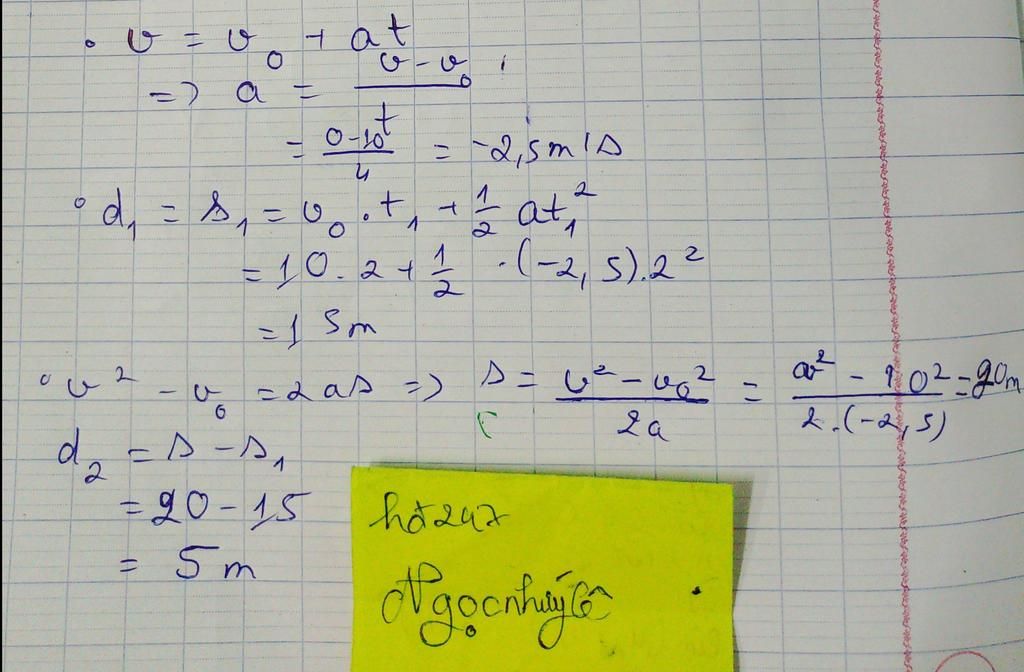 • v = v₀ + at
=> a = (v - v₀)/t
= (0-10)/4 = -2,5m/s
• d₁ = s₁ = v₀.t₁ + 1/2 at₁²
= 10.2 + 1/2 .(-2,5).2²
= 15m
• v² - v₀ = 2as => s = (v² - v₀²)/2a = (0² - 10²)/2.(-2,5) = 20m
d₂ = s - s₁
= 20 - 15
= 5m
hđ247